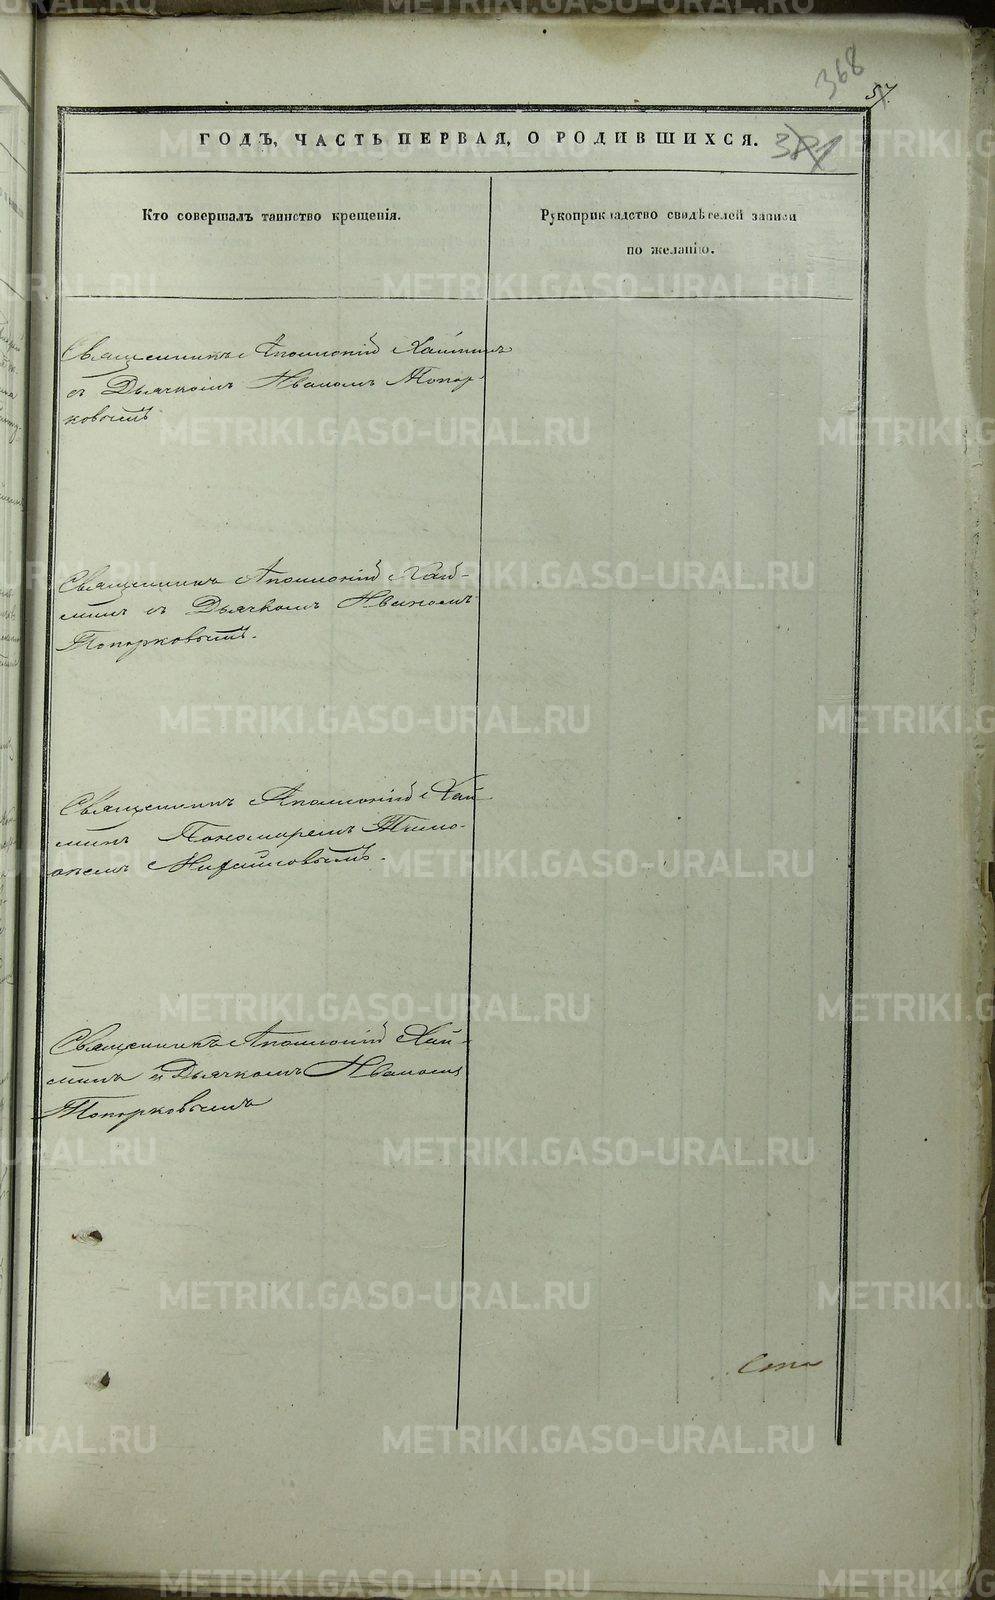 368
57.
ГОДЪ, ЧАСТЬ ПЕРВАЯ, О РОДИВШИХСЯ. 381
Кто совершалъ таинство крещенія.
Рукоприкладство свидѣтелей записи
по желанію.
Священникъ Аполлоній Хай
съ Дьячкомъ Иваномъ Топор-
ковымъ
Священникъ Аполлоній Хай-
минъ съ Дьячкомъ Иваномъ
Топорковымъ.
Священникъ Аполлоній Хай
минъ Пономаремъ Тимо-
Михайловымъ.
Священникъ Аполлоній Хай-
минъ и Дьячкомъ Иваномъ
Топорковымъ
METRIKI.GASO-URAL.RU